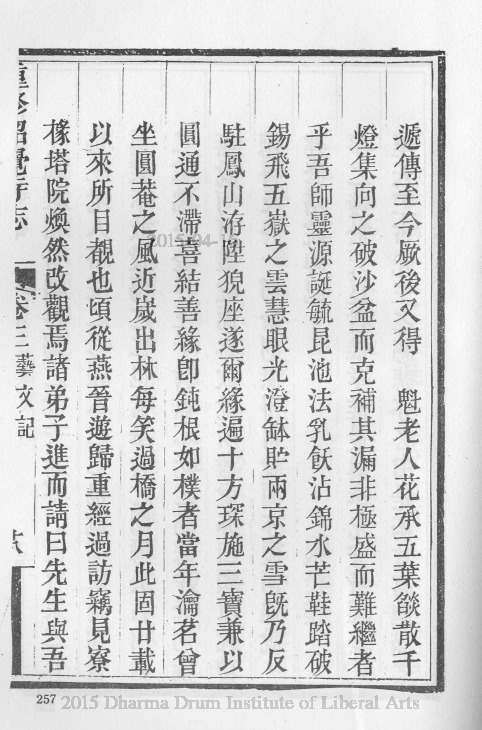 遞傳至今厥後又得　魁老人花承五葉燄散千
燈集向之破沙盆而克補其漏非極盛而難繼者
乎吾師靈源誕毓昆池法乳飫沾錦水芒鞋踏破
錫飛五嶽之雲慧眼光澄缽貯兩京之雪旣乃反
駐鳳山洊陞猊座遂爾緣遍十方琛施三寶兼以
圓通不滯喜結善緣卽鈍根如樸者當年瀹茗曾
坐圓菴之風近嵗出林每笑過橋之月此固廿載
以來所目覩也頃從燕晉遊歸重經過訪竊見寮
椽塔院煥然改觀焉諸弟子進而請曰先生與吾
重修昭覺寺志　卷三　藝文記
257 2015 Dharma Drum Institute of Liberal Arts